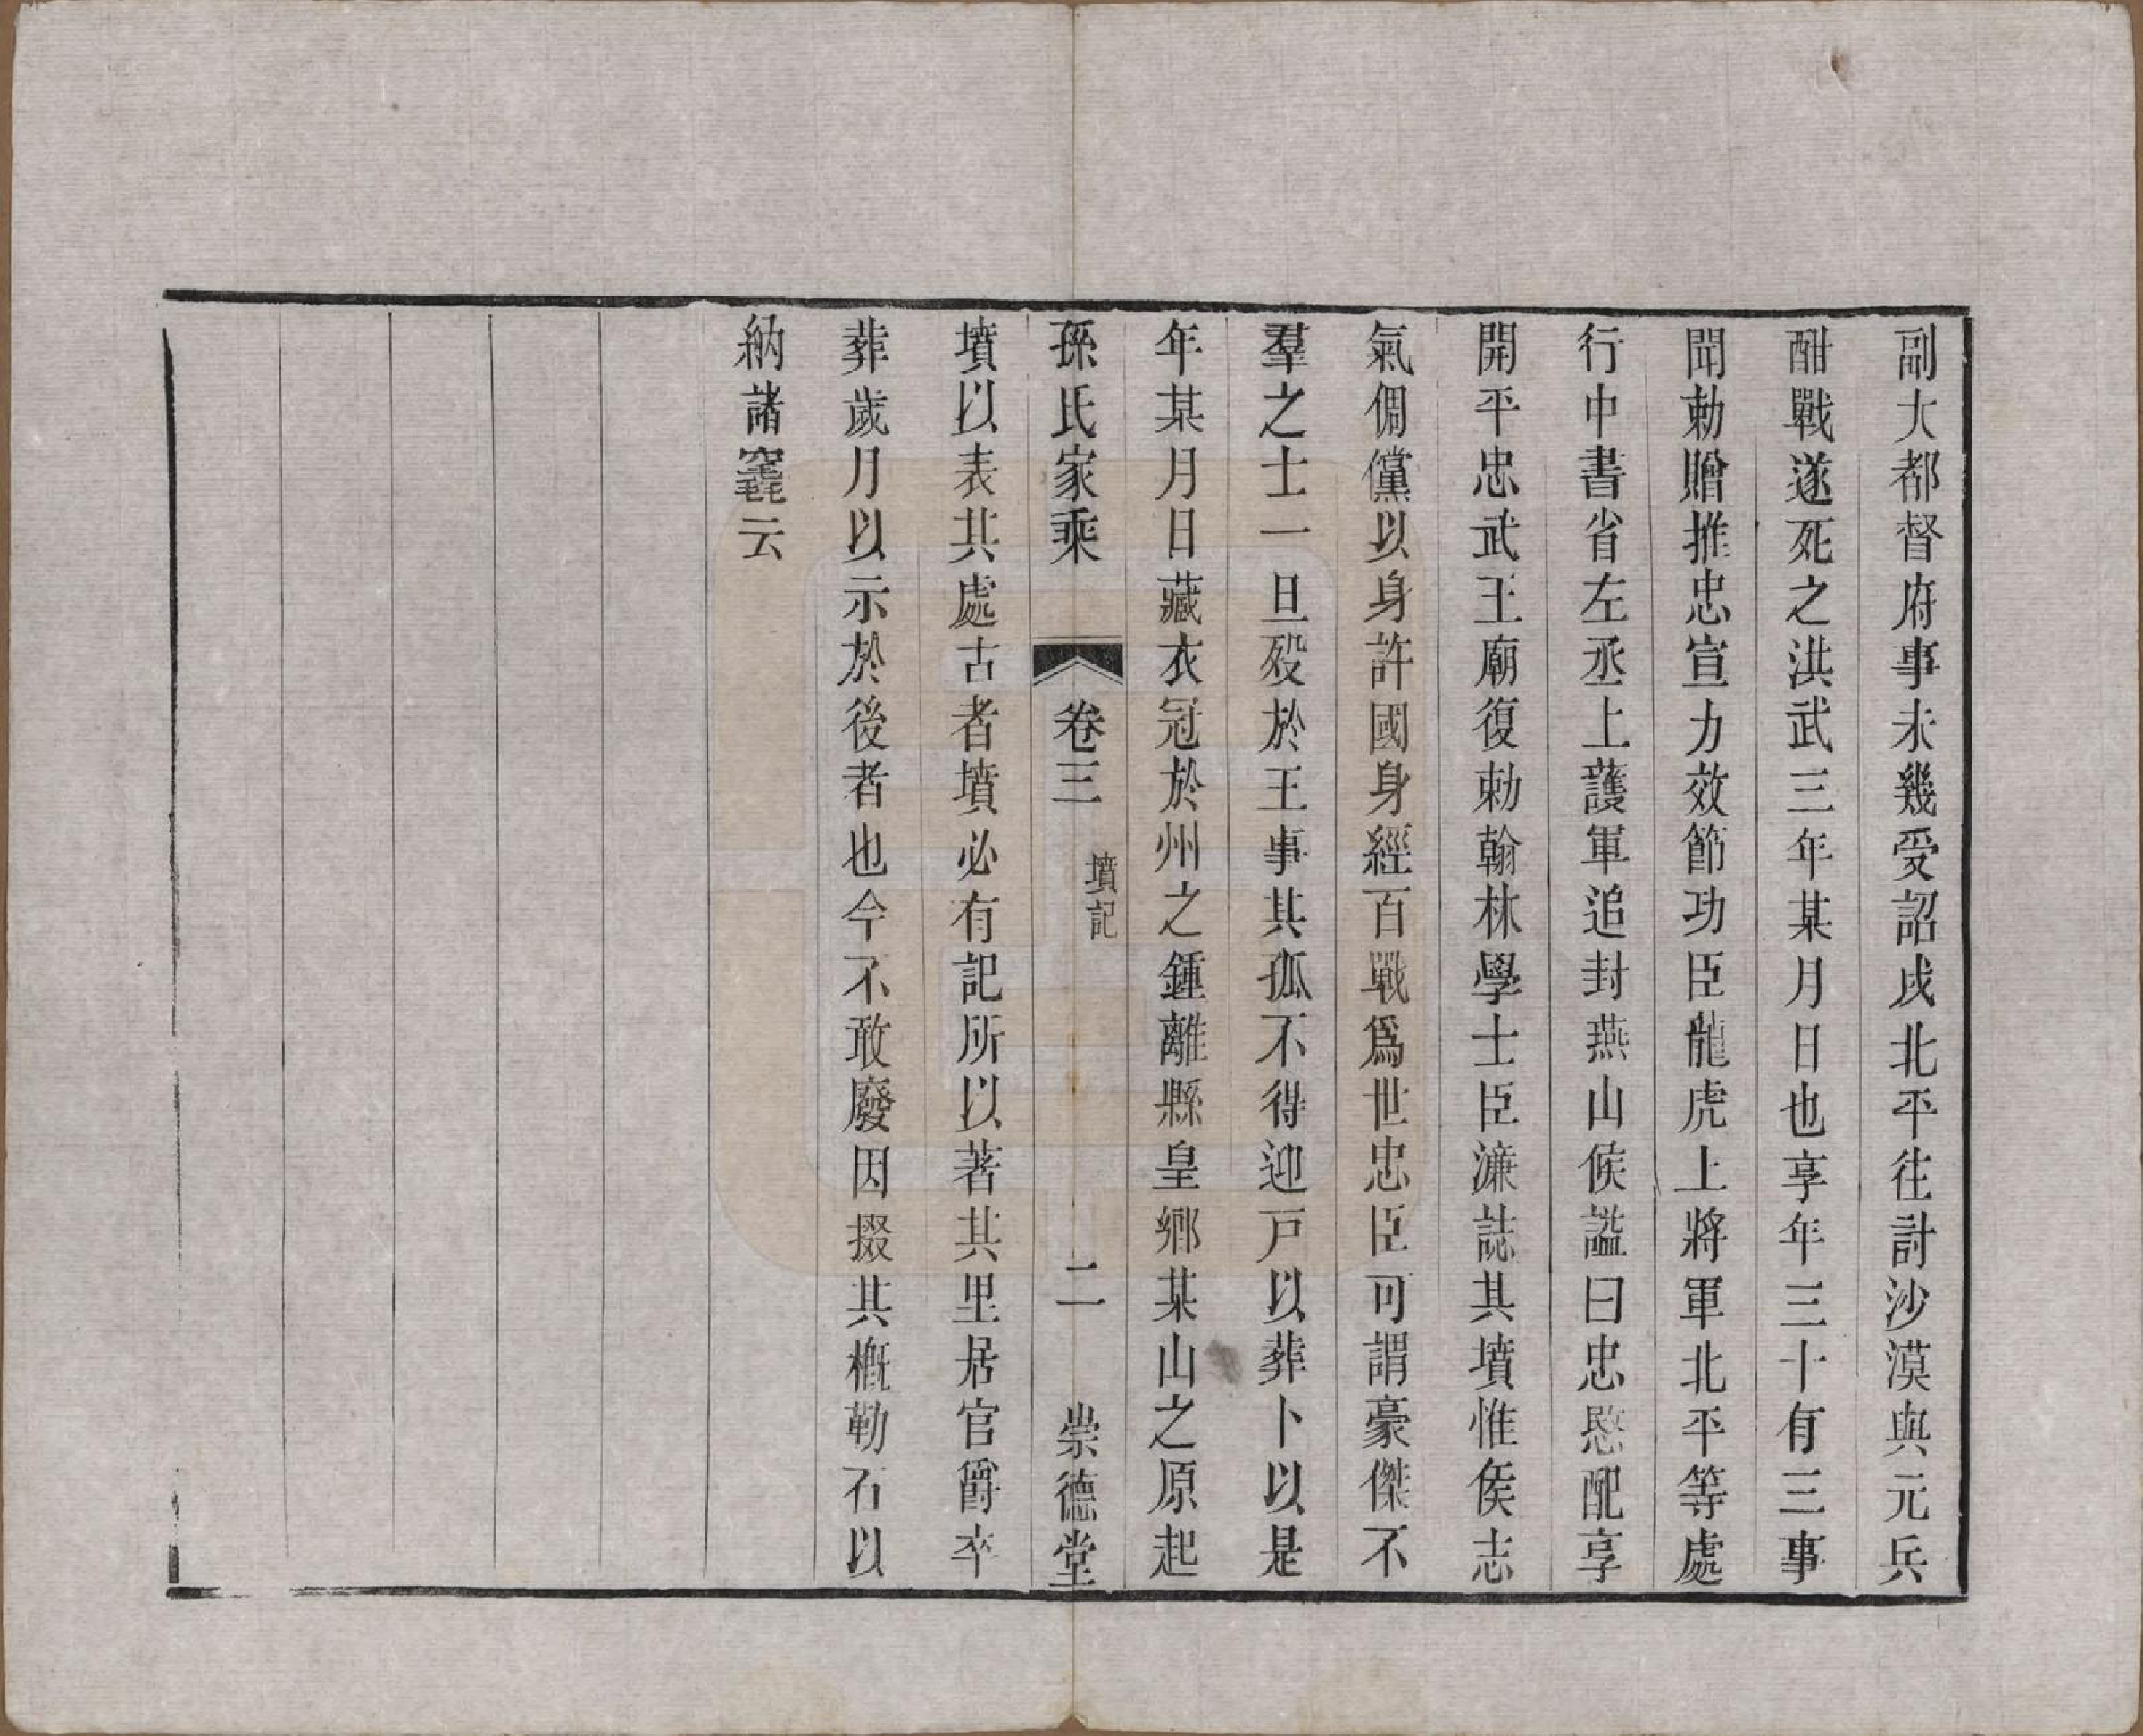 副大都督府事未幾受詔戍北平往討沙漠與元兵
酣戰遂死之洪武三年某月日也享年三十有三事
聞勅贈推忠宣力效節功臣龍虎上將軍北平等處
行中書省左丞上護軍追封燕山侯謚曰忠愍配享
開平忠武王廟復勅翰林學士臣濂誌其墳惟侯志
氣倜儻以身許國身經百戰爲世忠臣可謂豪傑不
羣之士一旦歿於王事其孤不得迎戸以葬卜以是
年某月日藏衣冠於州之鍾離縣皇鄉某山之原起
孫氏家乘 卷三 墳記 二 崇德堂
墳以表其處古者墳必有記所以著其里居官爵卒
葬歲月以示於後者也今不敢廢因掇其概勒石以
納諸竁云